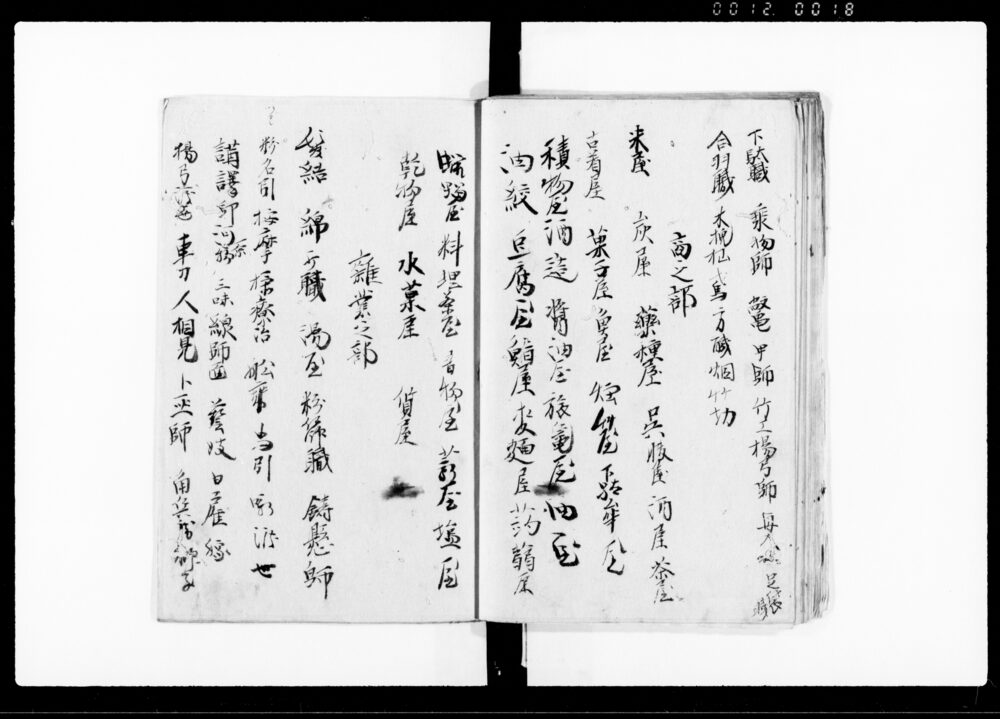 0012 0018
下駄職 乗物師 鼈甲師 竹工 楊弓師 足袋職
合羽職 木挽 杣 方職 烟竹切
商之部
米屋 炭屋 薬種屋 呉服屋 酒屋 茶屋
古着屋 菓子屋 魚屋 煙管屋 下駄傘屋
積物屋 酒造 醤油屋 旅籠屋 油屋
油絞 豆腐屋 鮨屋 麦麺屋 蒟蒻屋
蝋燭屋 料理茶屋 青物屋 薪屋 塩屋
乾物屋 水菓屋 質屋
雑業之部
髪結 綿打職 湯屋 粉篩職 鋳懸師
粉名引 按摩 揉療治 船乗
講譯師 三味線師匠 藝妓 日雇稼
楊弓 車力 人相見 卜巫師 角兵衛獅子